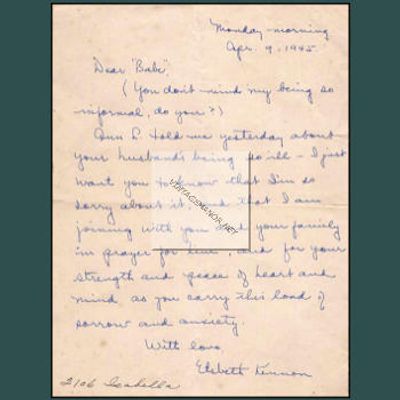 Monday morning
Apr. 9, 1945
Dear "Babe",
(You don't mind my being so
informal, do you?)
Ann L. told me yesterday about
your husband's being so ill - I just
want you to know that I'm so
sorry about it, and that I am
joining with you and your family
in prayer for him, and for your
strength and peace of heart and
mind as you carry this load of
sorrow and anxiety.
With love
Elsbeth Kennon
2106 Isabella